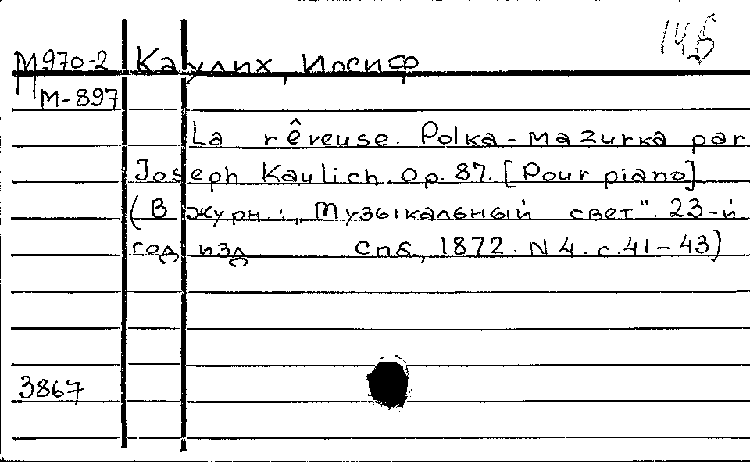 14Б
М970-2 Каулих, Иосиф
М-897
La rêveuse. Polka-mazurka par
Joseph Kaulich. Op. 87. [Pour piano]
(В журн.: „Музыкальный свет". 23-й
год изд СПб, 1872. N 4. с. 41-43)
3867